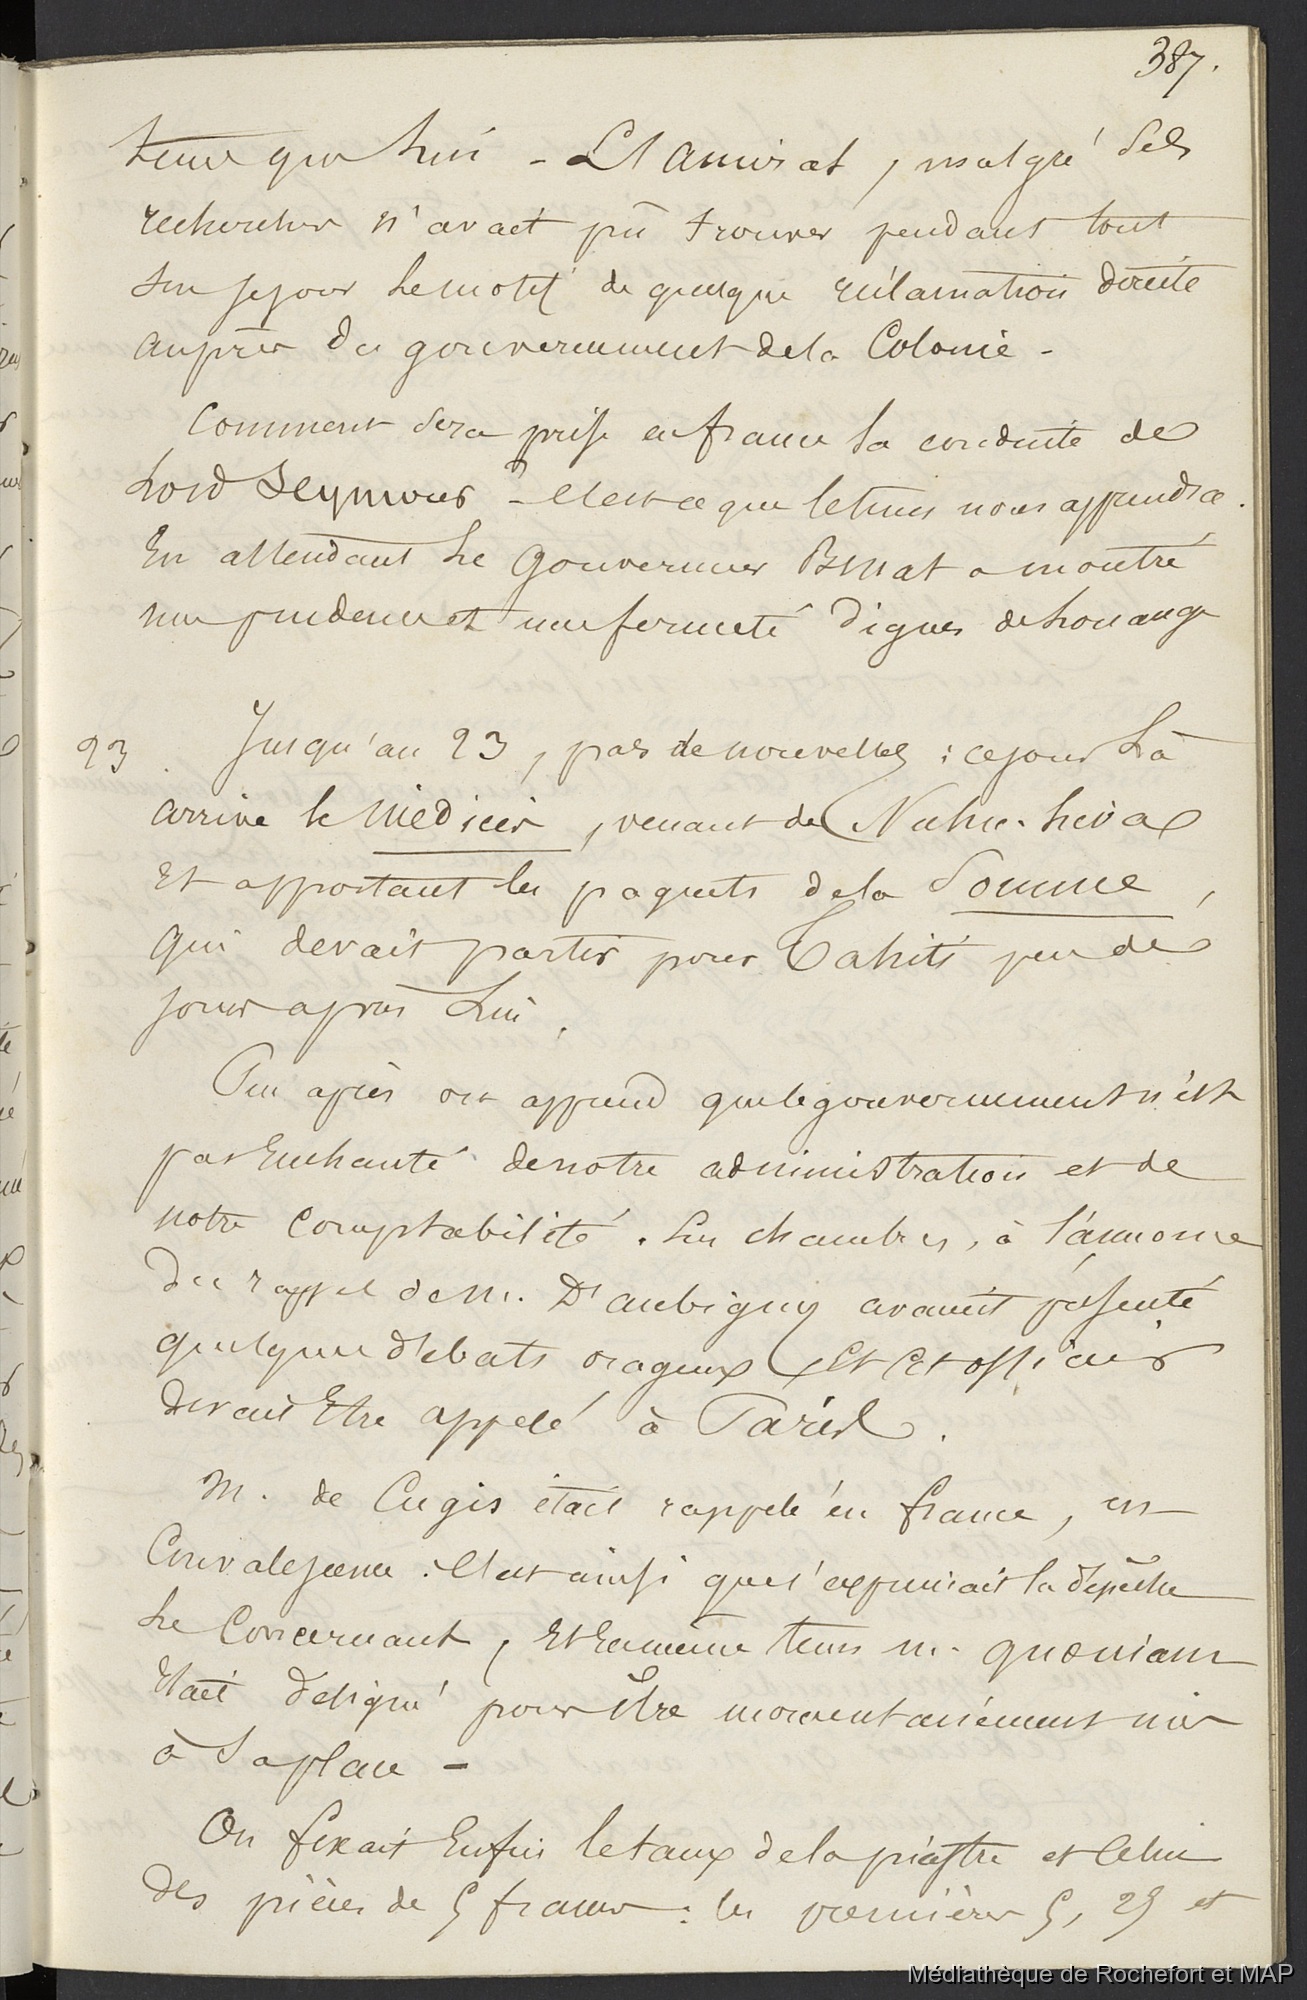 387.
tenue que lui - L'amiral, malgré ses
recherches n'avait pû trouver pendant tout
son séjour le motif de quelque réclamation directe
auprès du gouvernement de la Colonie -
Comment sera prise en france la conduite de
Lord Seymour ? - C'est ce que le tems nous apprendra.
En attendant le gouverneur Bruat a montré
une prudence et une fermeté dignes de louange
23 Jusqu'au 23, pas de nouvelles : ce jour là
arrive le médicis, venant de Nuhu-hiva
Et apportant les paquets de la Somme,
qui devait partir pour Tahiti peu de
jours après lui.
Peu après on apprend que le gouvernement n'est
pas Enchanté de notre administration et de
notre comptabilité. Les chambres, à l'annonce
du rappel de M. D'aubigny avaient présenté
quelques débats orageux Et Cet officier
devait Etre appelé à Paris.
M. de Cugis était rappelé en france, en
Convalescence : C'est ainsi que s'exprimait la dépêche
le Concernant, Et En même tems M. quoniam
Etait désigné pour Etre momentanément mis
à sa place -
On fixait Enfin le taux de la piastre et Celui
des pièces de 5 francs : les premières 5, 25 et
Médiathèque de Rochefort et MAP